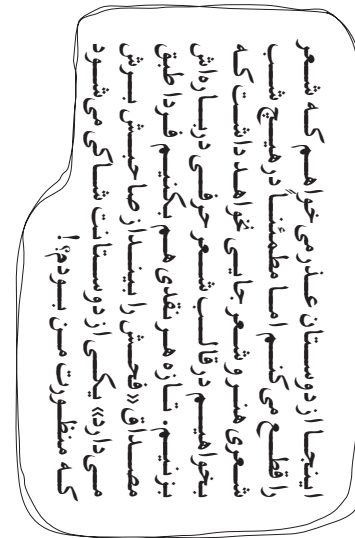 اینجا از دوستان عذر می‌خواهم که شعر
را قطع می‌کنم اما مطمئنا در هیچ شب
شعری هنر و شعر جایی نخواهد داشت که
بخواهیم در قالب شعر حرفی درباره‌اش
بزنیم. تازه هر نقدی هم بکنیم فردا طبق
مصداق «فحش را بینداز صاحبش برش
می‌دارد» یکی از دوستانت شاکی می‌شود
که منظورت من بودم؟!